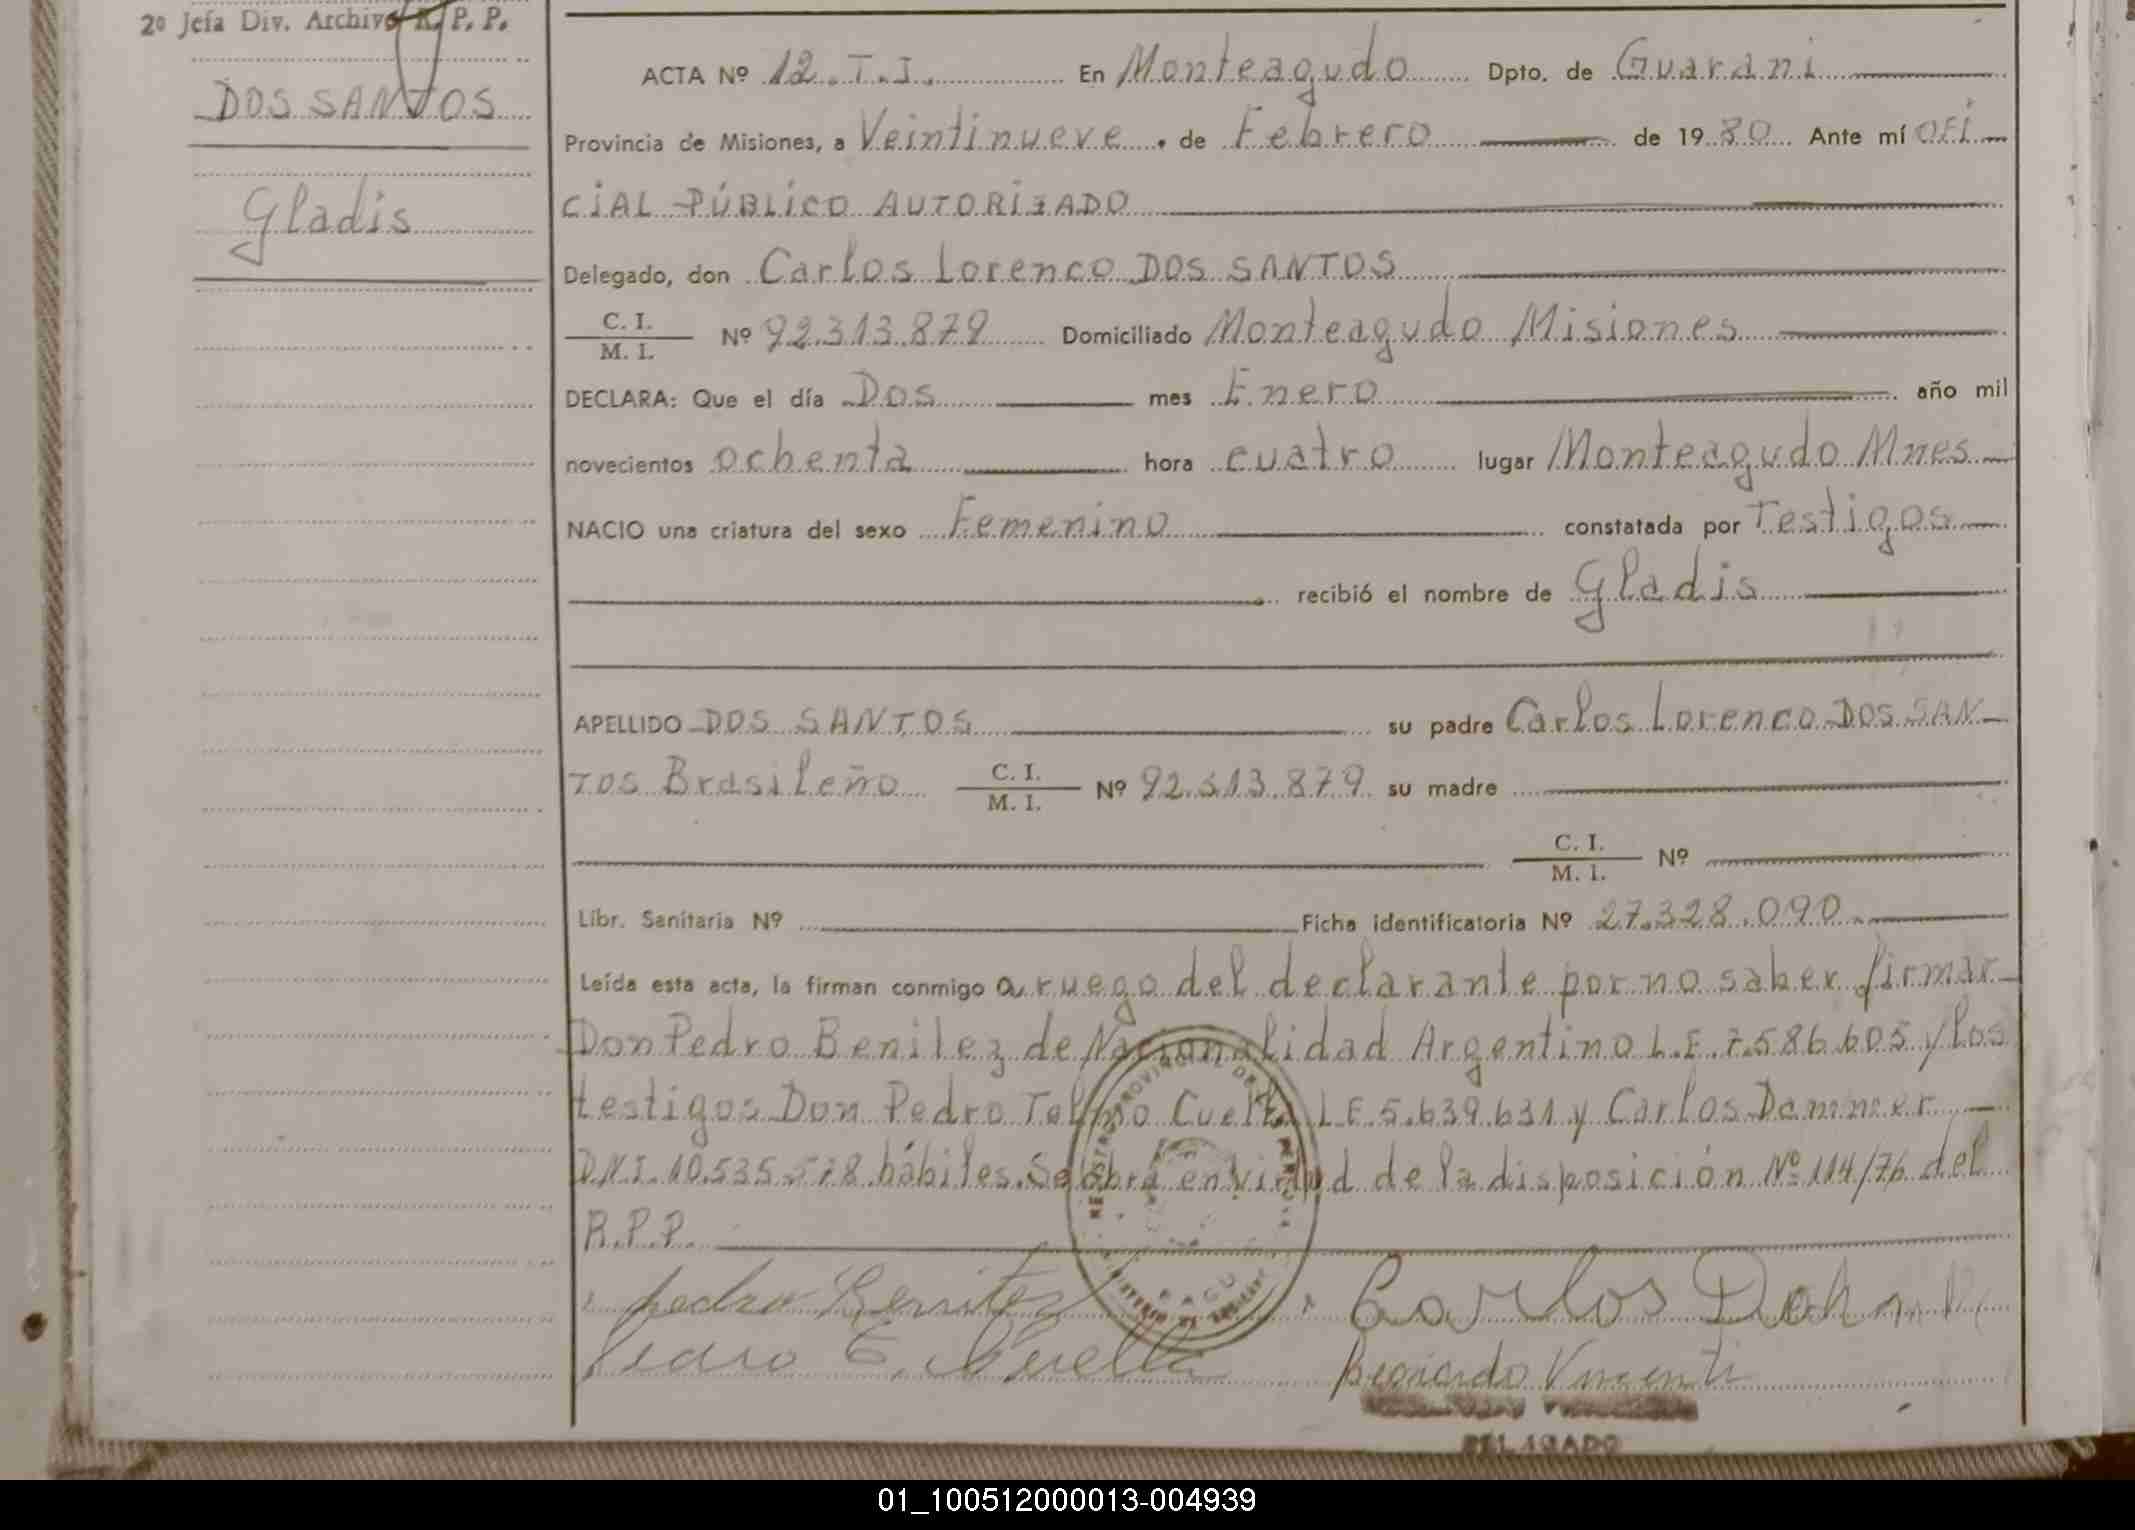 2º Jefa Div. Archivo R. P. P.
DOS SANTOS
Gladis
ACTA Nº 12.T.I. En Monteagudo Dpto. de Guarani
Provincia de Misiones, a Veintinueve de Febrero de 1980 Ante mí OFI
CIAL PÚBLICO AUTORIZADO
Delegado, don Carlos Lorenco DOS SANTOS
C. I.
M. I. Nº 92.313.879 Domiciliado Monteagudo Misiones
DECLARA: Que el día Dos mes Enero año mil
novecientos ochenta hora cuatro lugar Monteagudo Mnes
NACIO una criatura del sexo Femenino constatada por Testigos
recibió el nombre de Gladis
APELLIDO DOS SANTOS su padre Carlos Lorenco DOS SAN
TOS Brasileño C. I.
M. I. Nº 92.313.879 su madre
C. I.
M. I. Nº
Libr. Sanitaria Nº Ficha identificatoria Nº 27.328.090
Leída esta acta, la firman conmigo a ruego del declarante por no saber firmar
Don Pedro Benitez de Nacionalidad Argentino L.E. 7.586.605 y los
testigos Don Pedro Telmo Cuella L.E. 5.639.631 y Carlos Dammer
D.N.I. 10.535.578 hábiles. Se labra en virtud de la disposición Nº 114/76 del
R.P.P.
Pedro Benitez Carlos
Pedro Cuella Bernardo Vicenti
DELEGADO
01_100512000013-004939